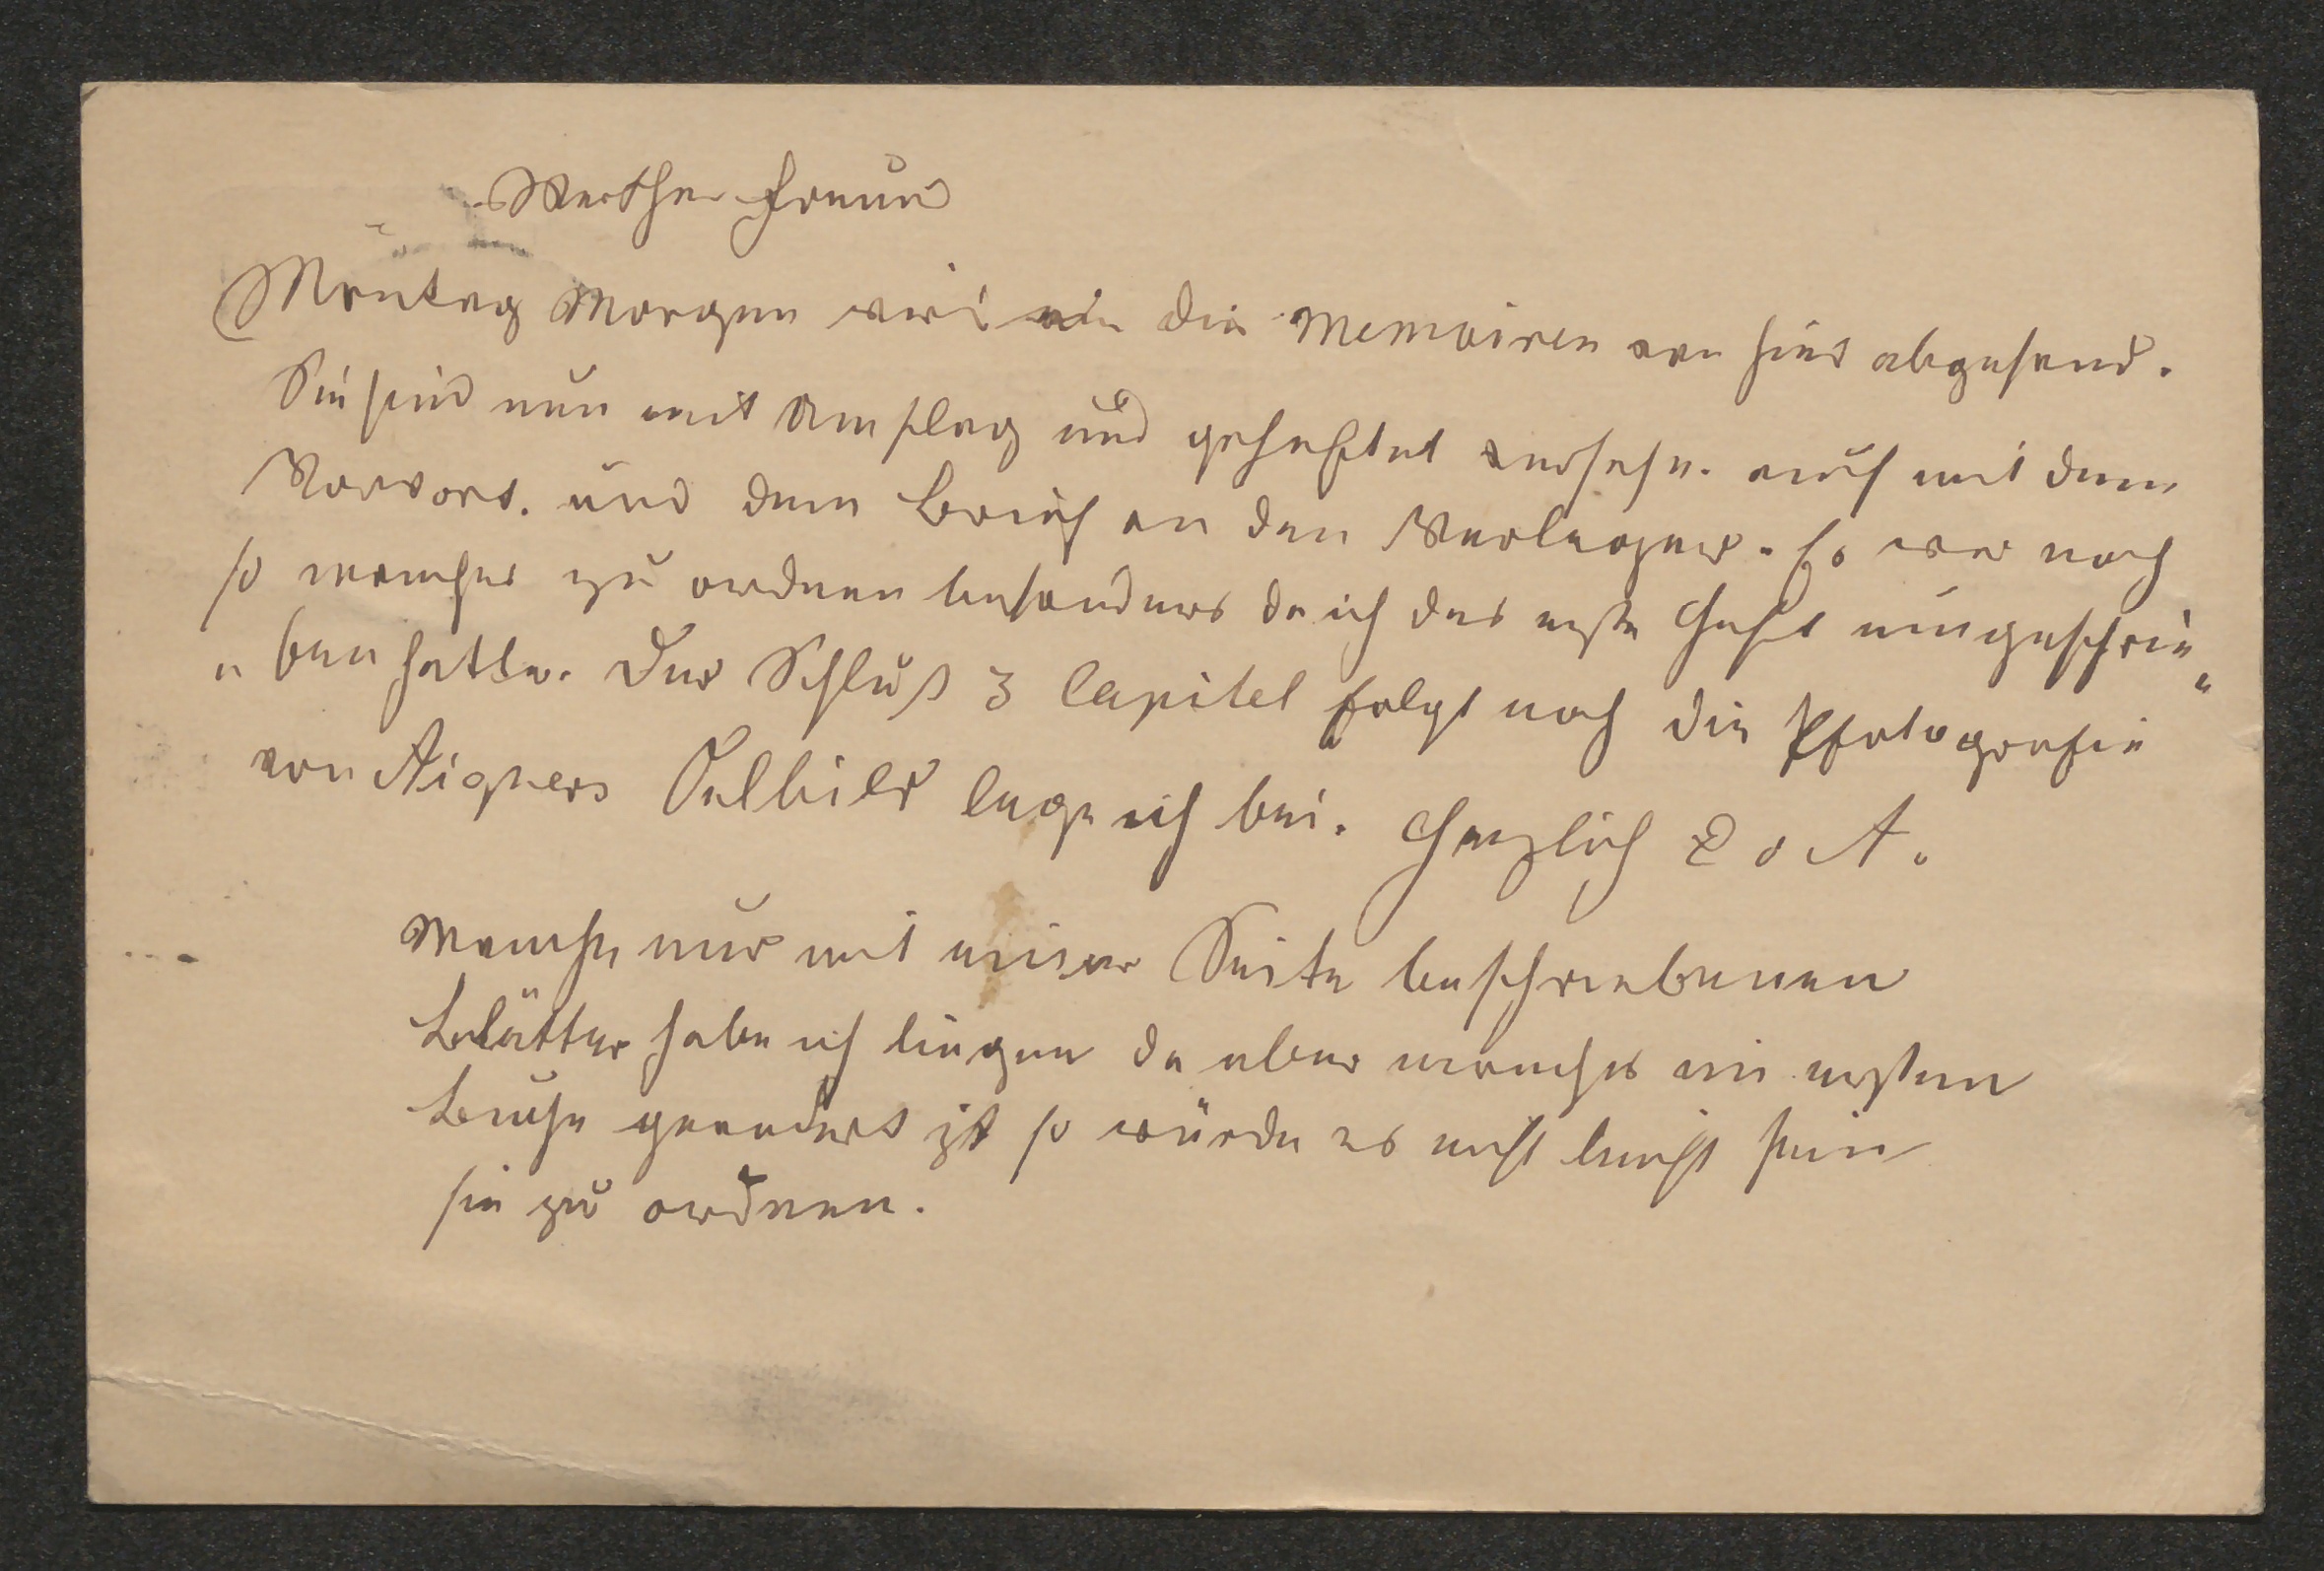 Werther Freund
Montag Morgen wird die Memoiren von hier abgesand.
Sie sind nun mit Umschlag und geheftet versehn. auch mit dem
Vorwort. und dem Brief an den Verleger. Es war noch
so manches zu ordnen besonders da ich das erste Heft umgeschrie„
„ben hatte. Der Schluß 3 Capitel folgt noch die Pfotografie
von Aigners Oelbild lege ich bei. Herzlich L v A.
Manche nur mit einer Seite beschriebenen
Blätter habe ich liegen da aber manches im ersten
Buche geendert ist so würde es nicht leicht sein
sie zu ordnen.